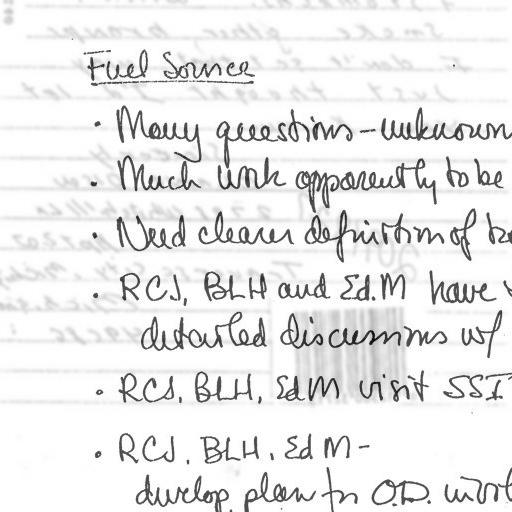 Fuel Source
• Many questions – unknown
• Much work apparently to be
• Need clearer definition of
• RCJ, BLH and Ed.M have
detailed discussions w/
• RCJ, BLH, EdM visit SSI
• RCJ, BLH, Ed M –
develop plan for O.D.